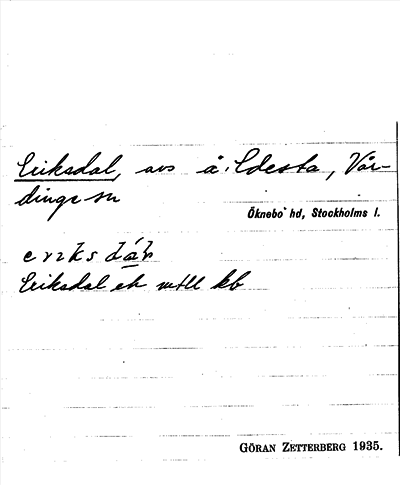 Eriksdal, avs å. Edesta, Vår-
dinge sn
Öknebo hd, Stockholms l.
Eriksdal ek mtll kb
GÖRAN ZETTERBERG 1935.